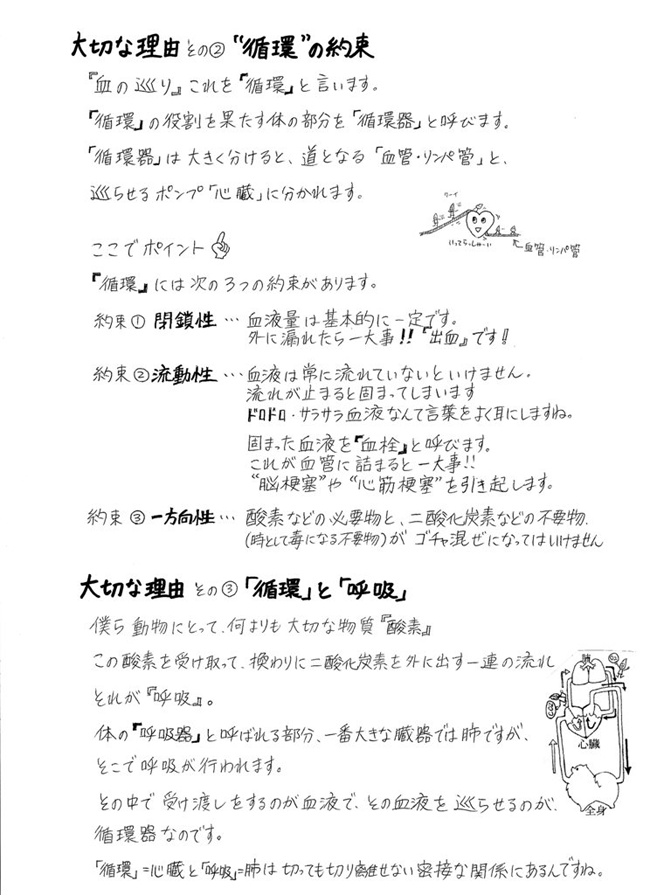 大切な理由 その② "循環"の約束
『血の巡り』これを『循環』と言います。
『循環』の役割を果たす体の部分を「循環器」と呼びます。
「循環器」は大きく分けると、道となる「血管・リンパ管」と、
巡らせるポンプ「心臓」に分かれます。
ワーイ
いってらっしゃーい
血管・リンパ管
ここでポイント
『循環』には次の3つの約束があります。
約束① 閉鎖性 … 血液量は基本的に一定です。
外に漏れたら一大事!!『出血』です!!
約束② 流動性 … 血液は常に流れていないといけません。
流れが止まると固まってしまいます
ドロドロ・サラサラ血液なんて言葉をよく耳にしますね。
固まった血液を『血栓』と呼びます。
これが血管に詰まると一大事!!
"脳梗塞"や"心筋梗塞"を引き起します。
約束③ 一方向性 … 酸素などの必要物と、二酸化炭素などの不要物
(時として毒になる不要物)が ゴチャ混ぜになってはいけません
大切な理由 その③「循環」と「呼吸」
僕ら動物にとって、何よりも大切な物質『酸素』
この酸素を受け取って、換わりに二酸化炭素を外に出す一連の流れ
それが『呼吸』。
体の『呼吸器』と呼ばれる部分、一番大きな臓器では肺ですが、
そこで呼吸が行われます。
その中で受け渡しをするのが血液で、その血液を巡らせるのが、
循環器なのです。
「循環」=心臓と「呼吸」=肺は切っても切り離せない密接な関係にあるんですね。
肺
心臓
全身